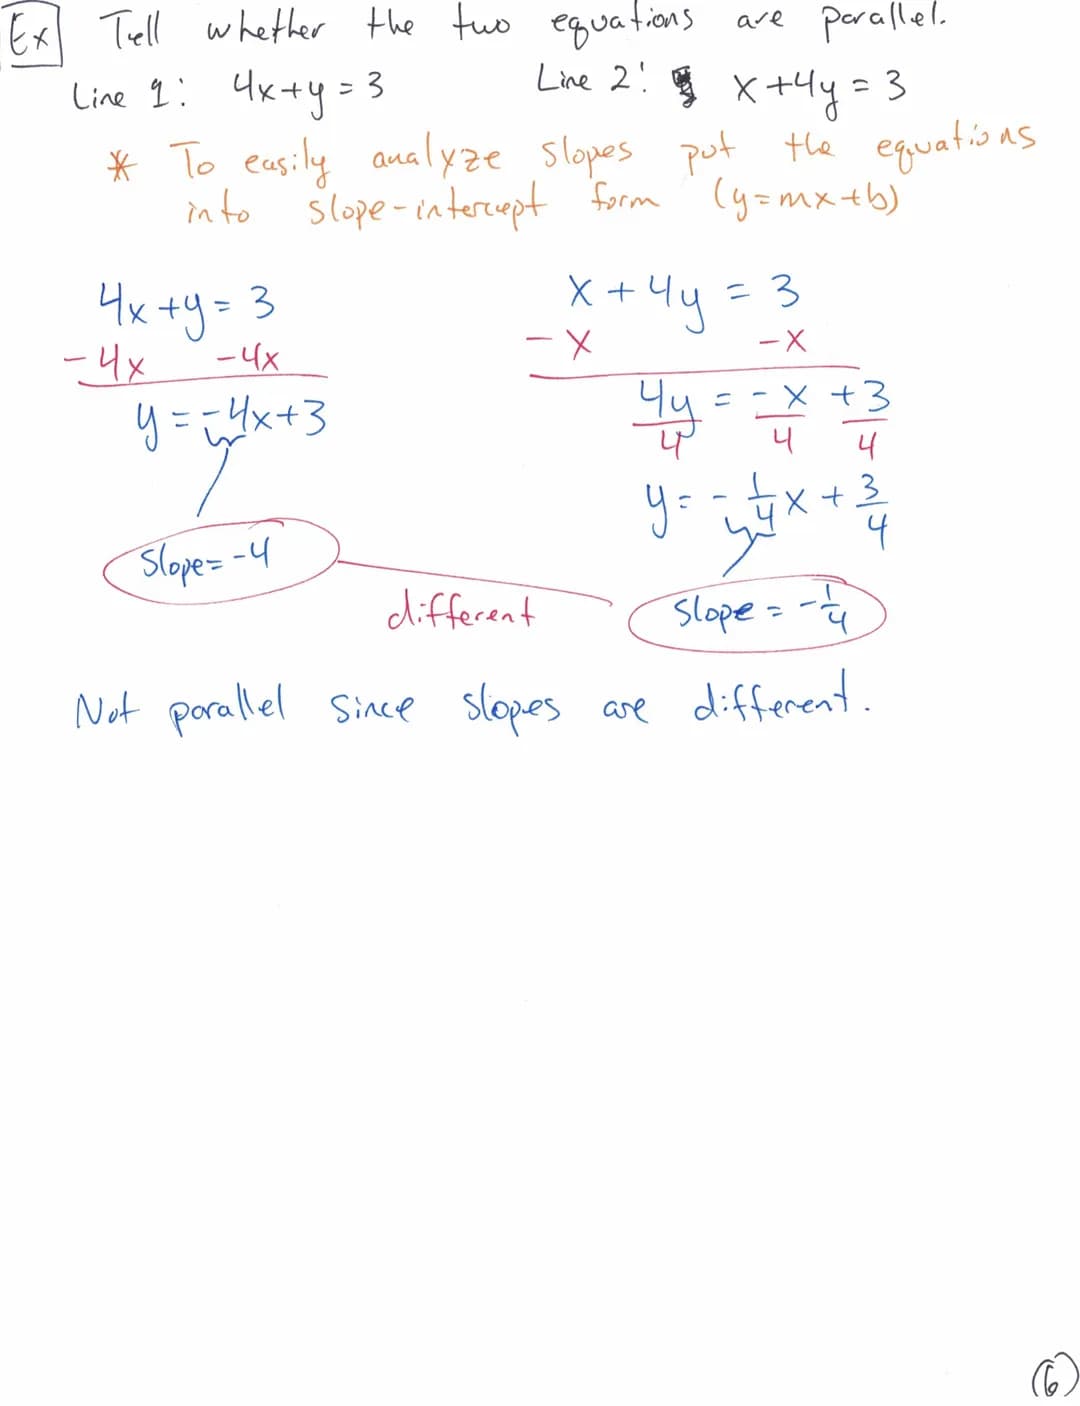 Ex Tell whether the two equations are parallel.
Line 1: 4x+y=3 Line 2: x+4y=3
* To easily analyze slopes put the equations
into slope-intercept form (y=mx+b)
4x+y=3
-4x -4x
y=-4x+3
Slope=-4
x+4y=3
-x -x
4y/4 = -x/4 +3/4
y=-1/4x+3/4
Slope=-1/4
different
Not parallel since slopes are different.
6